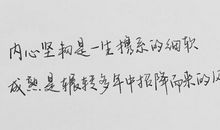 内心坚韧是一生携系的细软
成熟是辗转多年中招降而来的